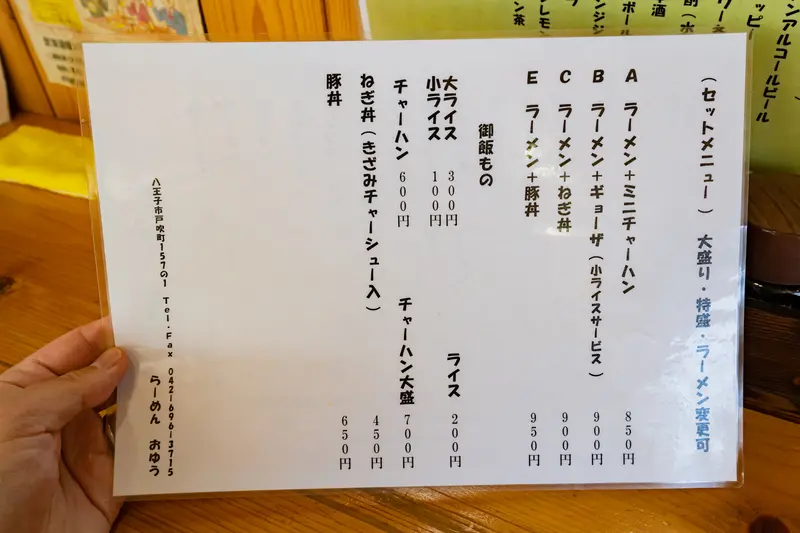 (セットメニュー) 大盛り・特盛・ラーメン変更可
A ラーメン+ミニチャーハン 850円
B ラーメン+ギョーザ(小ライスサービス) 900円
C ラーメン+ねぎ丼 900円
E ラーメン+豚丼 950円
御飯もの
大ライス 300円 ライス 200円
小ライス 100円
チャーハン 600円 チャーハン大盛 700円
ねぎ丼(きざみチャーシュー入) 450円
豚丼 650円
八王子市戸吹町157の1 Tel・Fax 042-696-3715
らーめん おゆう
ンアルコールビール